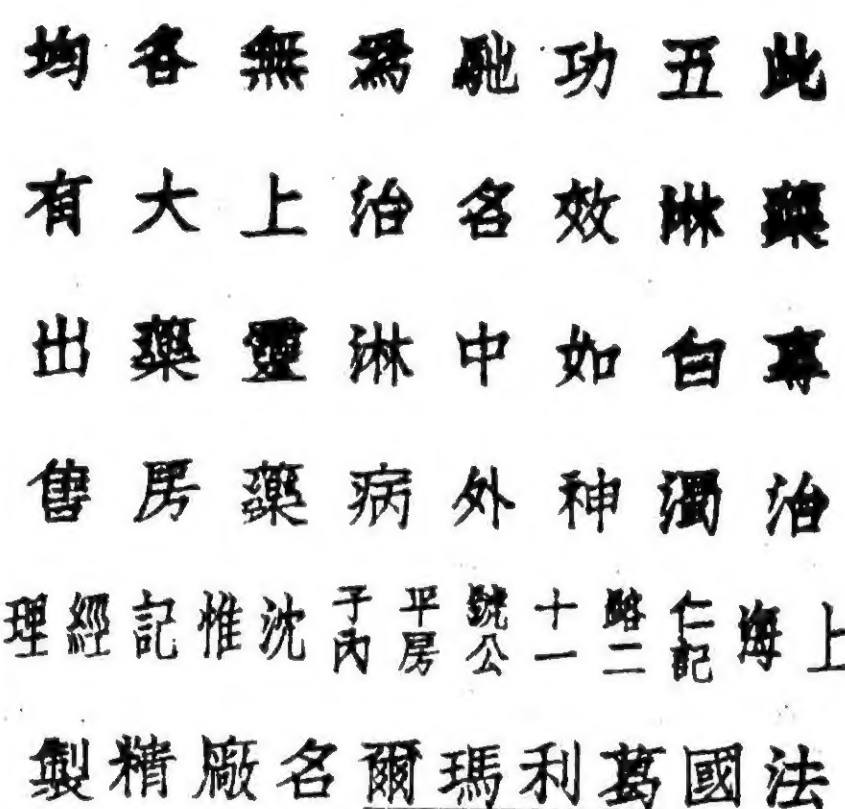 此藥專治
五淋白濁
功效如神
馳名中外
為治淋病
無上靈藥
各大藥房
均有出售
上海仁記路二十一號公平房子內沈惟記經理
法國葛利瑪爾名廠精製